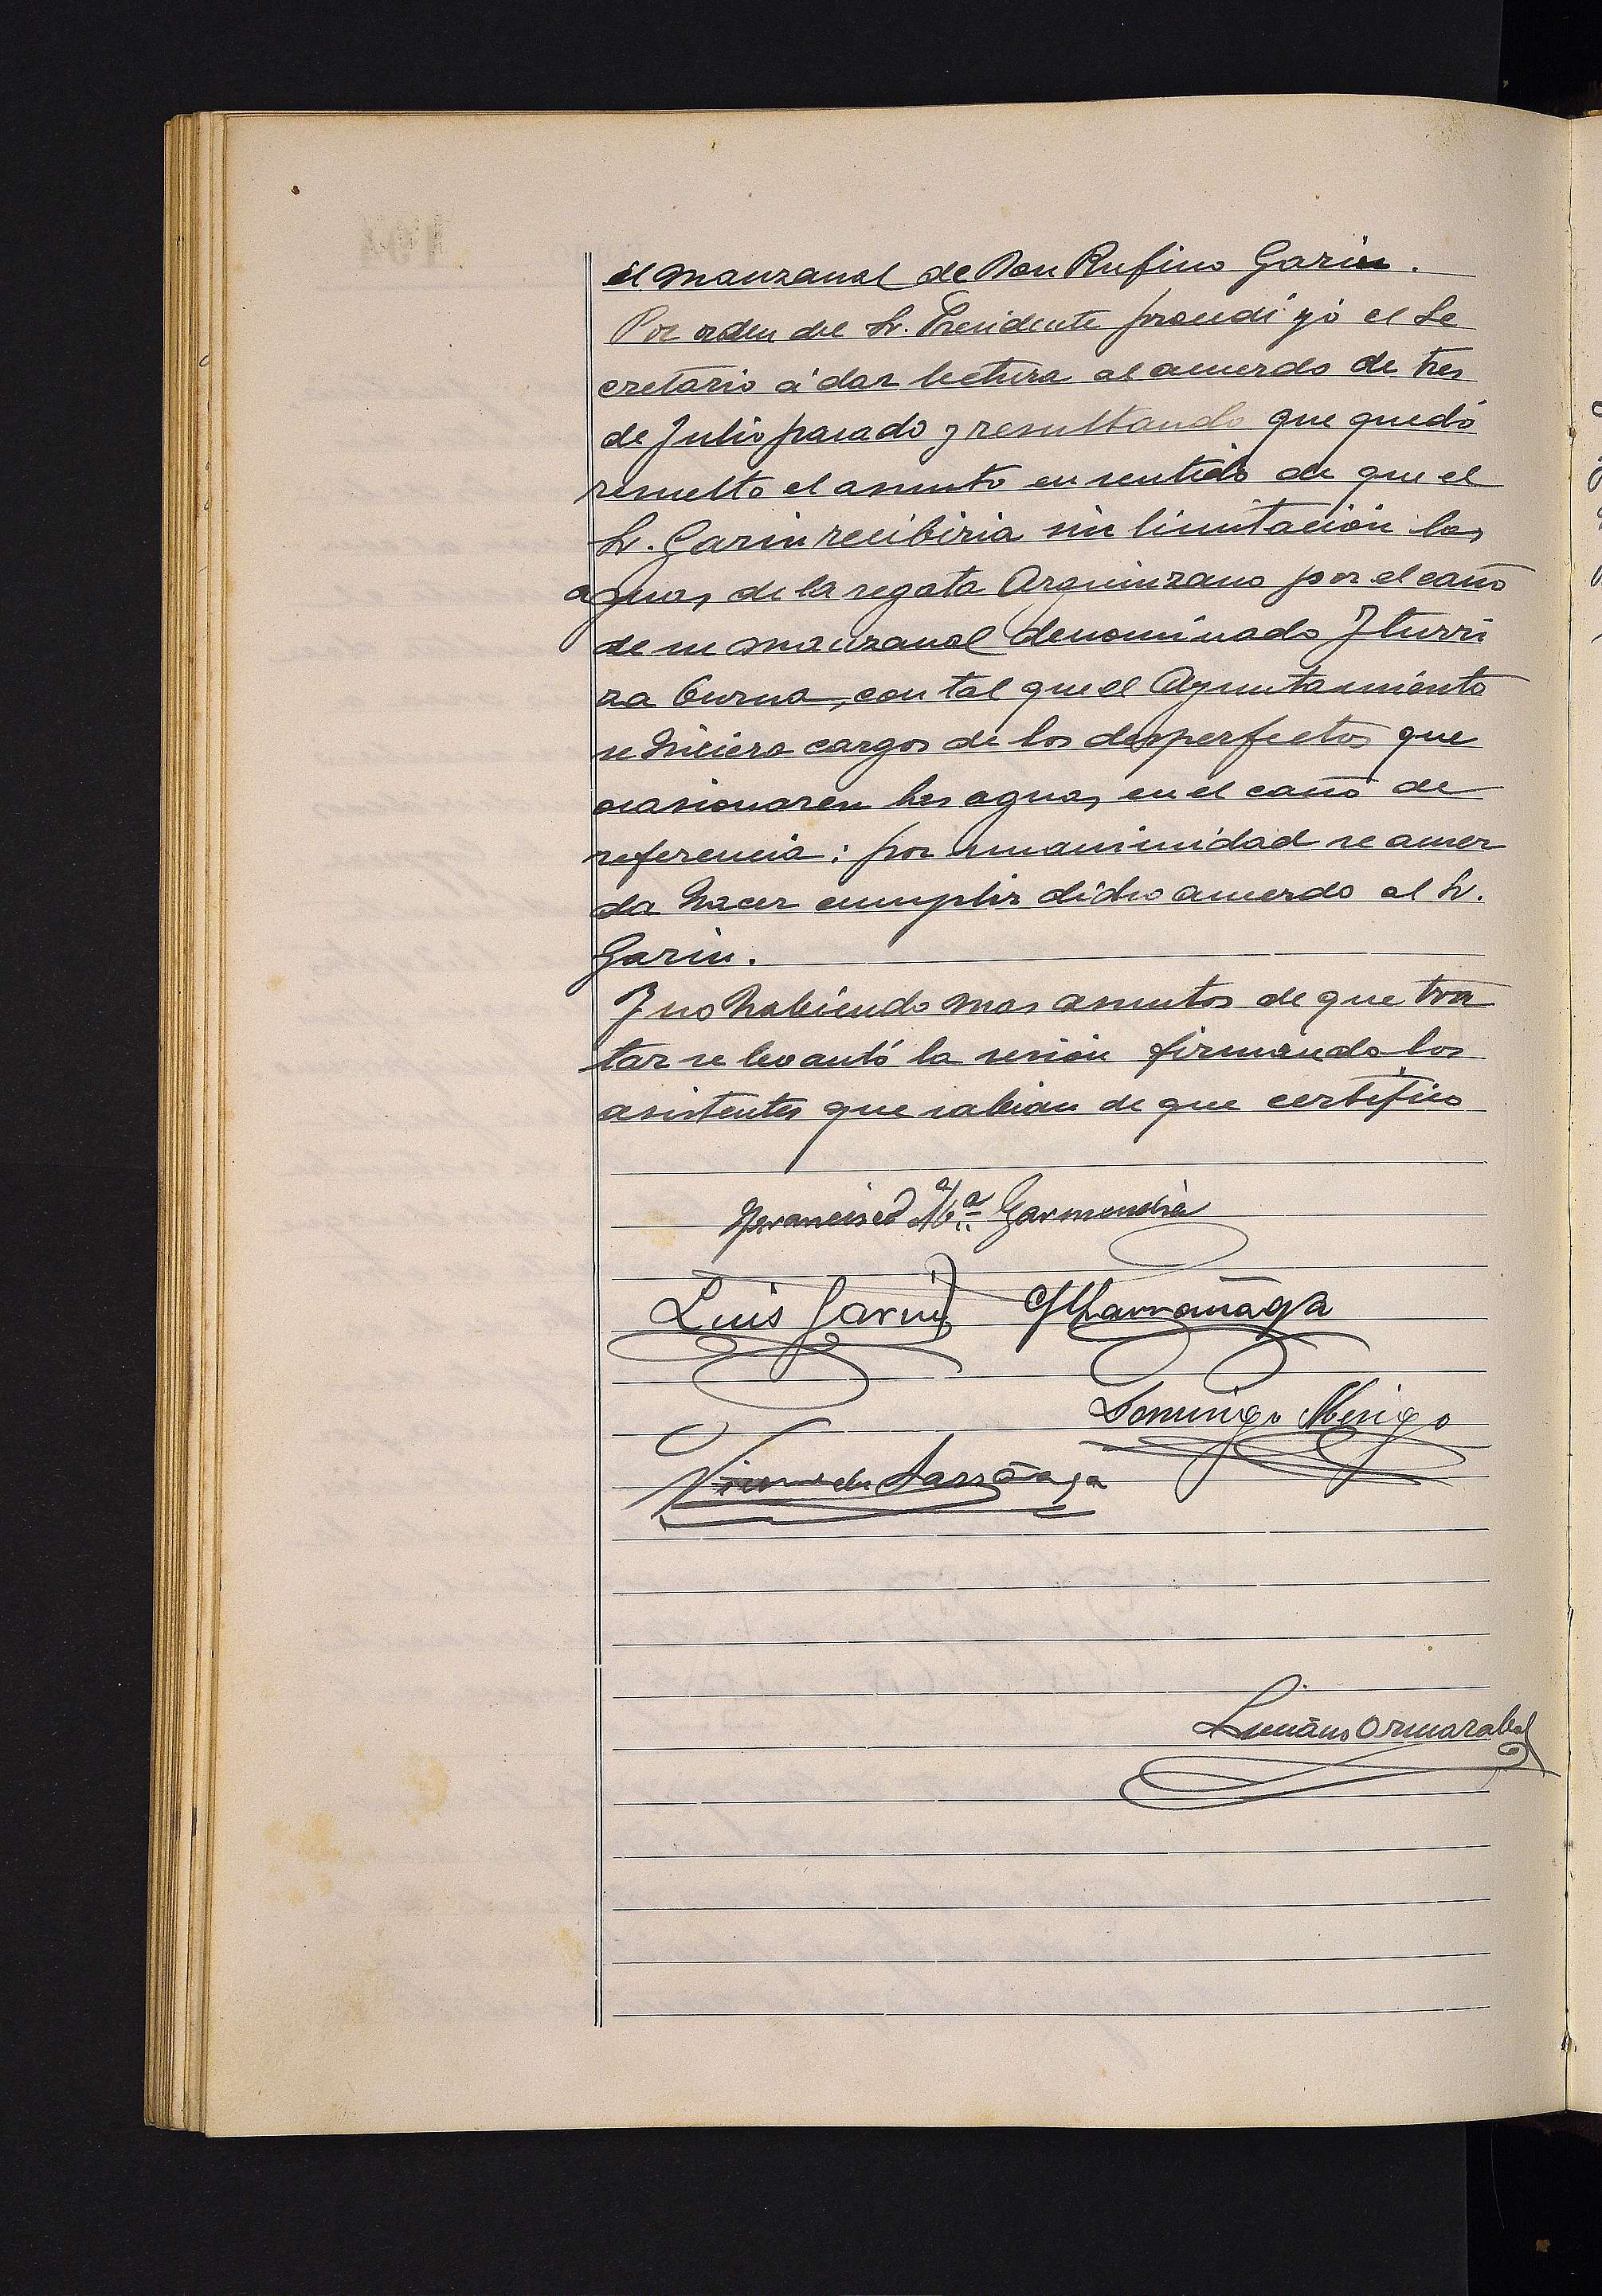 el manzanal de Don Rufino Garin.
Por orden del Sr. Presidente procedi yó el Se
cretario á dar lectura al acuerdo de tres
de Julio pasado y resultando que quedó
resuelto el asunto en sentido de que el
Sr. Garin recibiria sin limitación las
aguas de la regata Arguinzano por el caño
de su manzanal denominado Iturri
za , con tal que el Ayuntamiento
se hiciera cargos de los desperfectos que
ocasionaren las aguas en el caño de
referencia: por unanimidad se acuer
da hacer cumplir dicho acuerdo al Sr.
Garin.
Y no habiendo mas asuntos de que tra
tar se levantó la sesión firmando los
asistentes que sabian de que certifico
Francisco Mª Garmendia
Luis Garin Larrañaga
Domingo
Larrañaga
Luciano Ormazabal